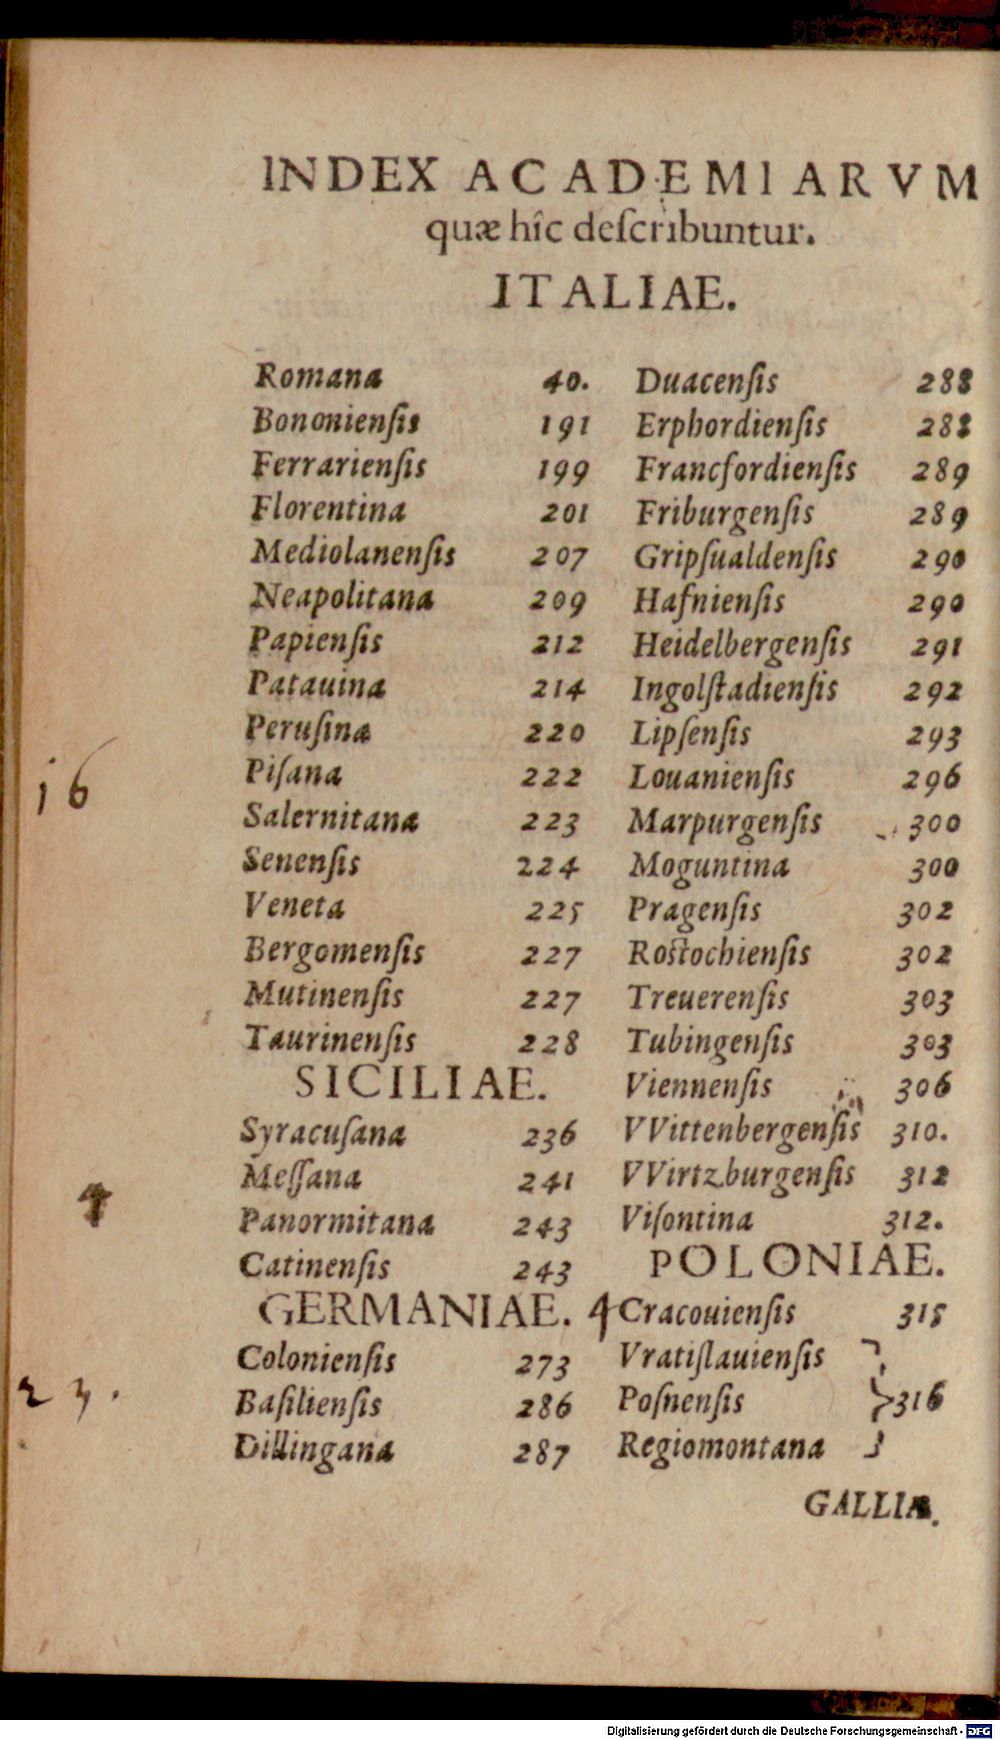 INDEX ACADEMIARVM
quæ hîc deſcribuntur.
ITALIAE.
Romana 40.
Bononienſis 191
Ferrarienſis 199
Florentina 201
Mediolanenſis 207
Neapolitana 209
Papienſis 212
Patauina 214
Peruſina 220
Piſana 222
16
Salernitana 223
Senenſis 224
Veneta 225
Bergomenſis 227
Mutinenſis 227
Taurinenſis 228
SICILIAE.
Syracuſana 236
Meſſana 241
4
Panormitana 243
Catinenſis 243
GERMANIAE.
Colonienſis 273
23.
Baſilienſis 286
Dillingana 287
Duacenſis 288
Erphordienſis 288
Francfordienſis 289
Friburgenſis 289
Gripſualdenſis 290
Hafnienſis 290
Heidelbergenſis 291
Ingolſtadienſis 292
Lipſenſis 293
Louanienſis 296
Marpurgenſis 300
Moguntina 300
Pragenſis 302
Roſtochienſis 302
Treuerenſis 303
Tubingenſis 303
Viennenſis 306
VVittenbergenſis 310.
VVirtzburgenſis 312
Viſontina 312.
POLONIAE.
4 Cracouienſis 315
Vratiſlauienſis }
Poſnenſis } 316
Regiomontana }
GALLIÆ.
Digitalisierung gefördert durch die Deutsche Forschungsgemeinschaft - DFG